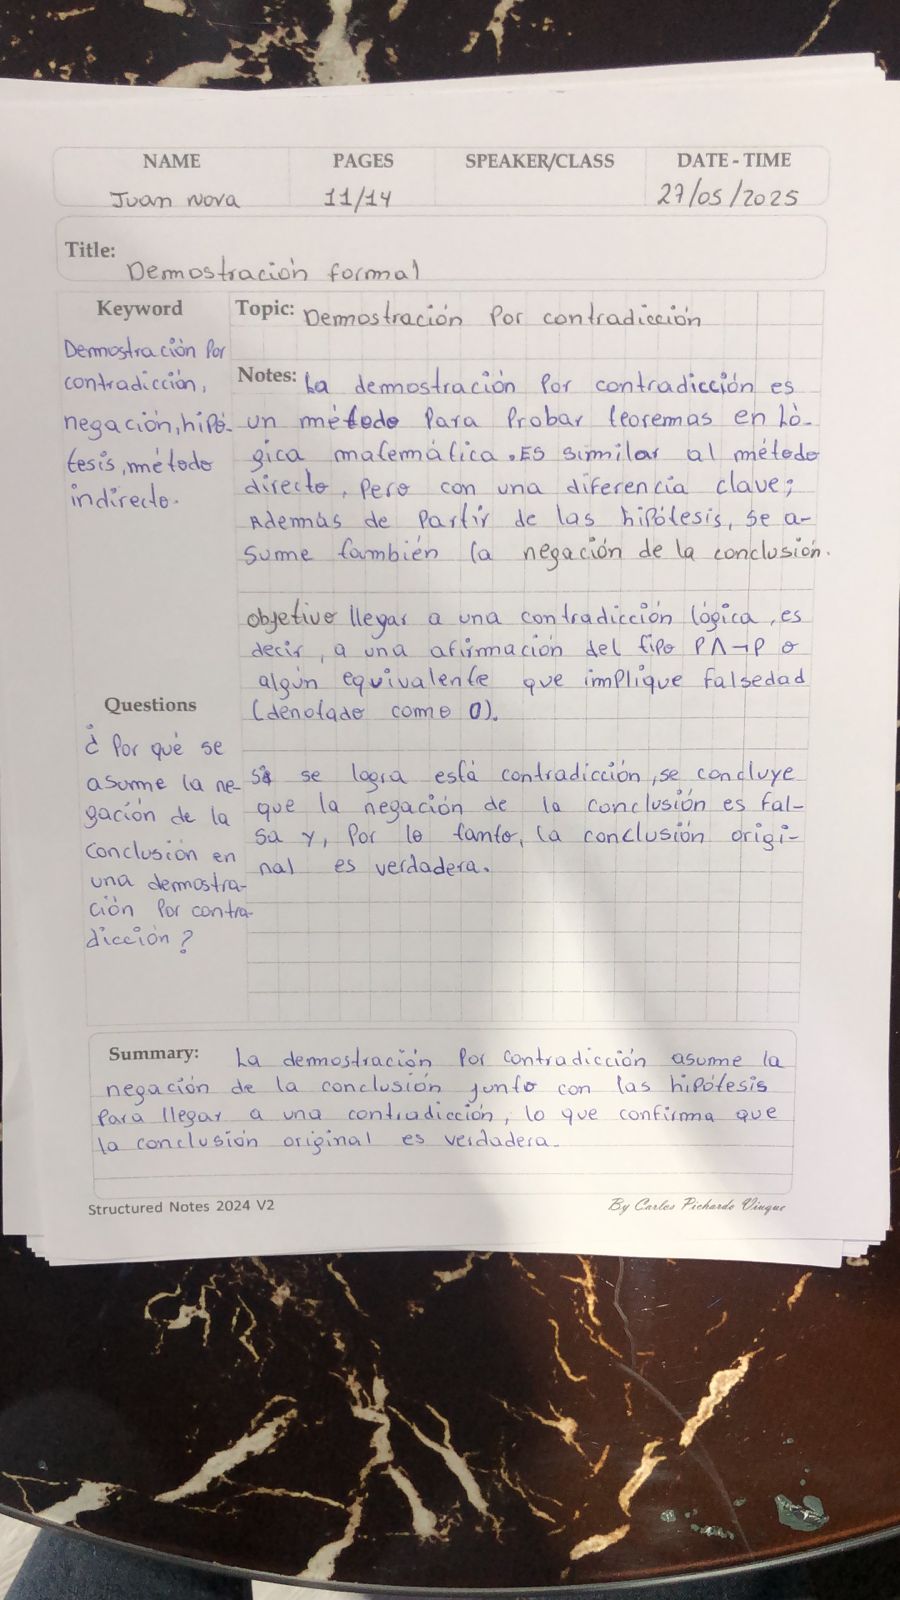 NAME PAGES SPEAKER/CLASS DATE - TIME
Juan Nova 11/14 27/05/2025
Title:
Demostración formal
Keyword
Demostración Por
contradicción,
negación, hipó-
tesis, método
indirecto.
Topic: Demostración Por contradicción
Notes: La demostración Por contradicción es
un método Para Probar teoremas en Ló-
gica matemática. ES similar al método
directo, Pero con una diferencia clave;
Además de Partir de las hipótesis, se a-
sume también la negación de la conclusión.
objetivo llegar a una contradicción lógica, es
decir, a una afirmación del tipo P∧¬P o
algún equivalente que implique falsedad
(denotado como 0).
Questions
¿ Por qué se
asume la ne-
gación de la
conclusión en
una demostra-
ción Por contra-
dicción?
Si se logra está contradicción, se concluye
que la negación de la conclusión es fal-
sa y, Por lo tanto, la conclusión origi-
nal es verdadera.
Summary: La demostración Por contradicción asume la
negación de la conclusión junto con las hipótesis
Para llegar a una contradicción, lo que confirma que
la conclusión original es verdadera.
Structured Notes 2024 V2 By Carlos Pichardo Viuque